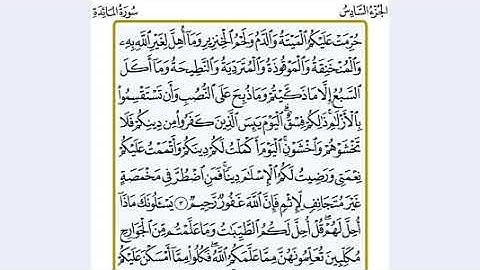 الجزء السادس
سورة المائدة
حُرِّمَتْ عَلَيْكُمُ الْمَيْتَةُ وَالدَّمُ وَلَحْمُ الْخِنزِيرِ وَمَا أُهِلَّ لِغَيْرِ اللَّهِ بِهِ
وَالْمُنْخَنِقَةُ وَالْمَوْقُوذَةُ وَالْمُتَرَدِّيَةُ وَالنَّطِيحَةُ وَمَا أَكَلَ
السَّبُعُ إِلَّا مَا ذَكَّيْتُمْ وَمَا ذُبِحَ عَلَى النُّصُبِ وَأَن تَسْتَقْسِمُوا
بِالْأَزْلَامِ ذَٰلِكُمْ فِسْقٌ ۗ الْيَوْمَ يَئِسَ الَّذِينَ كَفَرُوا مِن دِينِكُمْ فَلَا
تَخْشَوْهُمْ وَاخْشَوْنِ ۚ الْيَوْمَ أَكْمَلْتُ لَكُمْ دِينَكُمْ وَأَتْمَمْتُ عَلَيْكُمْ
نِعْمَتِي وَرَضِيتُ لَكُمُ الْإِسْلَامَ دِينًا ۚ فَمَنِ اضْطُرَّ فِي مَخْمَصَةٍ
غَيْرَ مُتَجَانِفٍ لِّإِثْمٍ فَإِنَّ اللَّهَ غَفُورٌ رَّحِيمٌ ٣ يَسْأَلُونَكَ مَاذَا
أُحِلَّ لَهُمْ ۖ قُلْ أُحِلَّ لَكُمُ الطَّيِّبَاتُ وَمَا عَلَّمْتُم مِّنَ الْجَوَارِحِ
مُكَلِّبِينَ تُعَلِّمُونَهُنَّ مِمَّا عَلَّمَكُمُ اللَّهُ ۖ فَكُلُوا مِمَّا أَمْسَكْنَ عَلَيْكُمْ